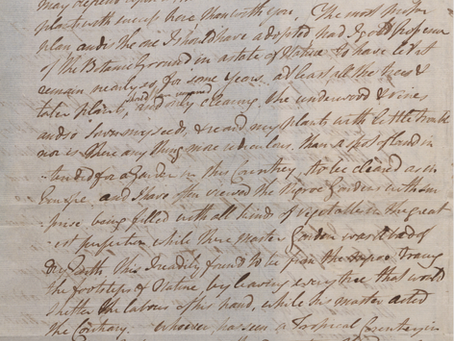 may depend upon
plants with me up here than with you. The most proper
plan, and the one I should have adopted had I got possession
of the Botanic Ground in a state of Nature, to have let it
remain nearly so, for some years, at least all the trees &
taler plants, and only clearing the underwood & vines
and so sown my seeds, & reard my plants with little trouble
nor is there any thing more ridiculous, than a spot of land in
-tended for a Garden in this Country, to be cleared as in
Europe, and I have often viewed the Negroe Gardens with sur
-prise, being filled with all kinds of vegetables in the great
-est perfection while there master's Garden was a bed of
dry Earth, this I readily found to be from the Negroe tracing
the footsteps of Nature, by leaving every tree that would
shelter the labours of his hand, while his master acted
the Contrary. Whoever has seen a Tropical Country in